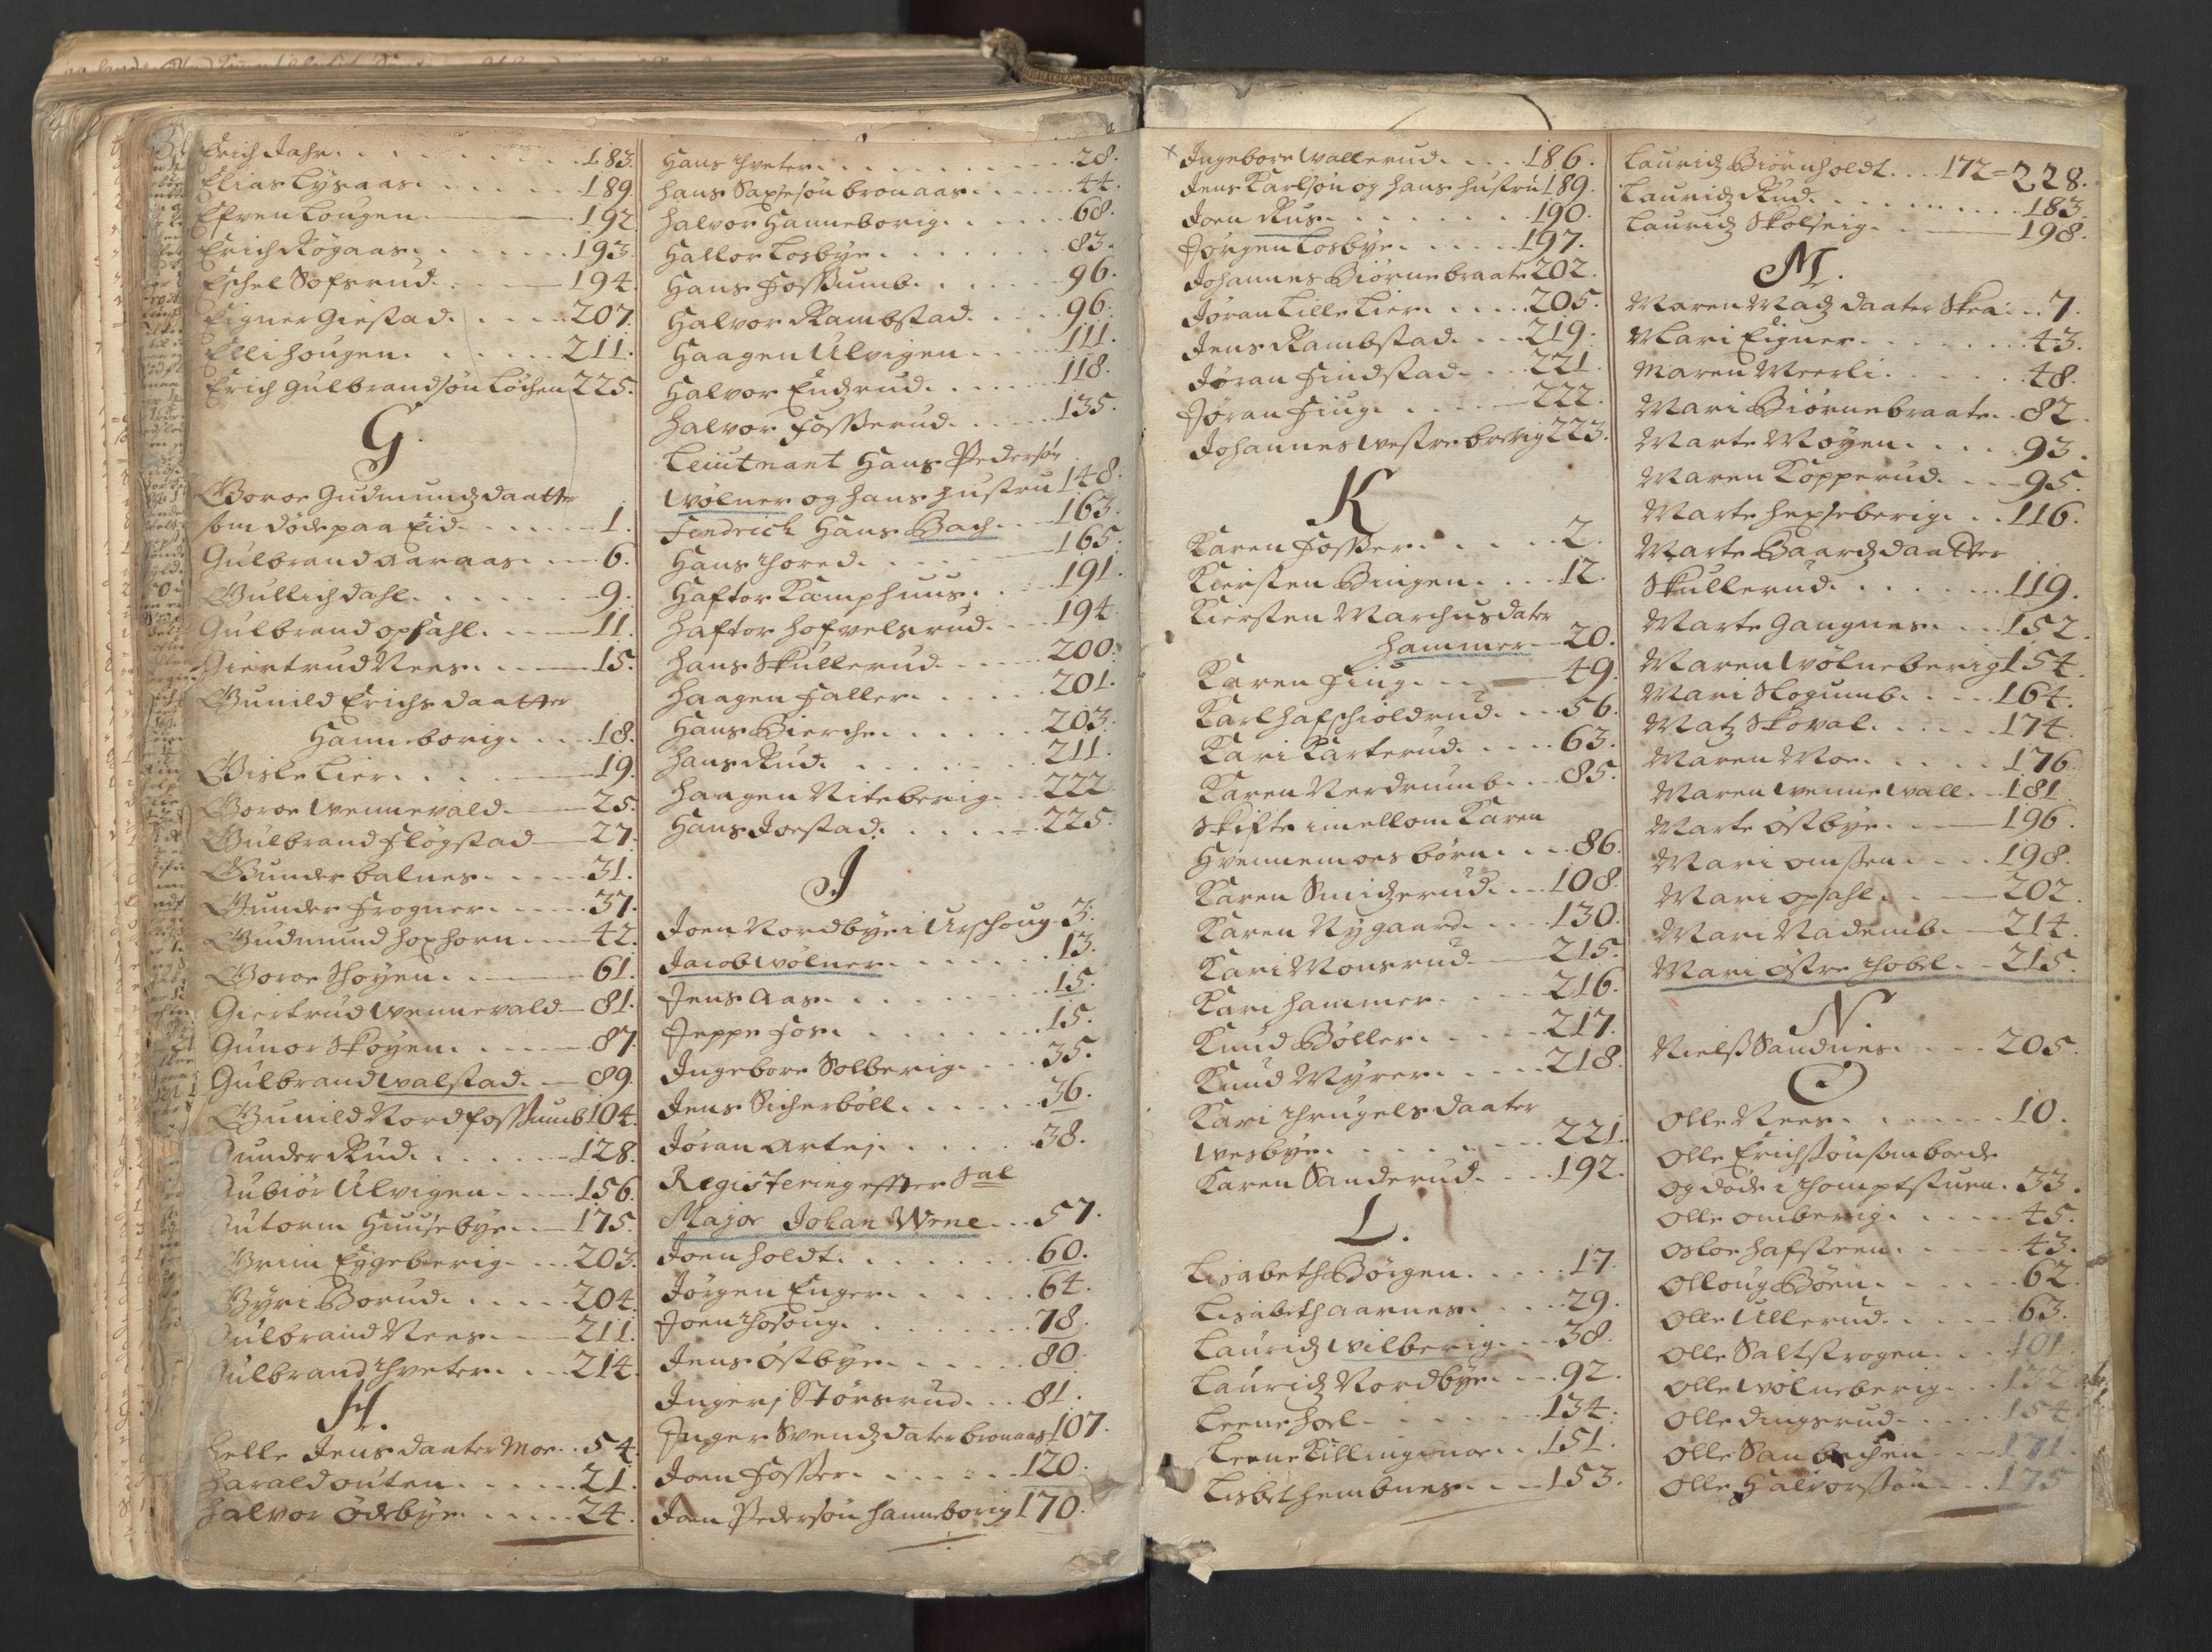 Erich Jahr. . . . . . . . . . 183.
Elias Lysaas. . . . . . . 189.
Efven Lougen. . 192.
Erich Rögaas. . . . . . . 193.
Eschel Sofsrud. . . 194.
Eigner Giestad. . . . . 207.
Elli Hougen. . . . . . . 211.
Erich Gulbrandsøn Løchen 225.
G.
Goroe Gudmundz daatter
som döde paa Eid. . . . . . 1.
Gulbrand Aaraas. . . 6.
Gullich Dahl. . . . . . . 9.
Gulbrand opsahl. . . . 11.
Giertrud Nees. . . . 15.
Gunild Erichs daatter
Hanneborig. . . . 18.
Giske Lier. . . 19.
Goroe Wennevald. 25.
Gulbrand Fløgstad 27.
Gunder balnes. . . . . 31.
Gunder Frogner. . . . . 37.
Gudmund hoxhorn. . . 42.
Goroe Thoyen. . 61.
Giertrud Wennevald 81.
Gunor Skoyen. . . . 87.
Gulbrand Walstad. . 89.
Gunild Nordfossumb 104.
Gunder Rud. . . . . . . 128.
Gubiör Ulvigen. . . . 156.
Gutorm Huusebye. . . 175.
Grim Eggeberig. . . . 203.
Gyri Borud. . . . . . 204.
Gulbrand Nees. . . 211.
Gulbrand Thveter. . . . 214.
H.
Helle Jens daater Moe. . 54.
Harald outen. . . . . . 21.
Halvor Ödebye. . . . . . 24.
Hans Thveter. . . . . . . . . . 28.
Hans Saxesøn bronaas. . . . . 44.
Halvor Hanneborig. . . . . . 68.
Hallor Losbye. . . . . . . . 83.
Hans Fossumb. . . . . . . 96.
Halvor Rambstad. . . . . 96.
Haagen Ulvigen. . . . . 111.
Halvor Endzrud. . . . . . 118.
Halvor Fosserud. . . . . 135.
Leiutnant Hans Pedersøn
Wölner og hans Hustru 148.
Fendrich Hans Bach. . . 163.
Hans Thored. . . . 165.
Haftor Kamphuus. . . . 191.
Haftor Hofvelsrud. . . . 194.
Hans Skullerud. . . . . . 200.
Haagen Faller. . . . . . 201.
Hans Bierche. . . . . . . 203.
Hans Rud. . . . . . . . 211.
Haagen Riteberig. . . 222.
Hans Joestad. . . . . . . 225.
J
Joen Nordbye i Urschoug. 3.
Jacob Wölner. . . . . . . 13.
Jens Aas. . . . . . . . . . 15.
Jeppe Foss. . . . . . . . . 15.
Ingebore Solberig. . . . . 35.
Jens Sicherböll. . . . . . 36.
Joran Artej. . . . . . . . 38.
Registering effter Sal
Major Johan Wrne. . . 57.
Joen Holdt. . . . . . . . 60.
Jörgen Enger. . . . . . . 64.
Joen Thosoug. . . . . . . 78.
Jens Östbye. . . . . . . 80.
Ingerj Störsrud. . . . 81.
Inger Svendz dater bronaas 107.
Joen Fosser. . . . . . . 120.
Joen Pedersøn Hanneborig 170.
x Ingebore Wallerud. . . . 186.
Jens Karlsøn og hans hustru 189.
Joen Rus. . . . . . . . . 190.
Jörgen Losbye. . . . . . 197.
Johannes Biörnebraate 202.
Joran Lille Lier. . . . . 205.
Jens Rambstad. . . . 219.
Jöran Findstad. . . . 221.
Jöran Fiug. . . . . 222.
Johannes Westre brevig 223.
K
Karen Fosser. . . . . . 2.
Kiersten Bingen. . . . 12.
Kiersten Marchus dater
Hammer. 20.
Karen Fiug. . . 49.
Karl Hafschioldrud. . . 56.
Kari Karterud. . . . . 63.
Karen Nerdrumb. . . 85.
Skifte imellom Karen
Hvennemoes börn. . . . 86.
Karen Smidzerud. . . 108.
Karen Nygaard. . . . 130.
Kari Monsrud. 215.
Kari Hammer. . . . . 216.
Knud Böller. . . . . . 217.
Knud Myrer. . . . . . 218.
Kari Thrugels daater
Wesbye. . . . . . . . . . 221.
Karen Sanderud. . . . 192.
L.
Lisabeth Böigen. . . . . 17.
Lisabeth Aarnes. . . . . 29.
Lauridz Wilberig. . . . 38.
Lauridz Nordbye. . . . 92.
Leene Hoel. . . . . . . 134.
Leene Killingmoe. . . 151.
Lisbet Hembnes. . . . 153.
Lauridz Biörnholdt. . . . 172=228.
Lauridz Rud. . . . . . . . . . . 183.
Lauridz Skolseig. . 198.
M.
Maren Madz daater Skea. . . 7.
Mari Eigner. . . . . . . . 43.
Maren Meerli. . . . . . . 48.
Mari Biörnebraate. . 82.
Marte Moyen. . . . . 93.
Maren Kopperud. . . . 95.
Marte Hexseberig. . . 116.
Marte Baardz daatter
Skullerud. . . . . . . . 119.
Marte Gangnes. . . . 152.
Maren Wölneberig 154.
Mari Slogumb. . . . . 164.
Matz Skoval. . . . . . 174.
Maren Moe. . . . . . 176.
Maren Wennewall. . 181.
Marte Östbye. . 196.
Mari omsen. . . . . 198.
Mari opsahl. . 202.
Mari Nademb. 214.
Mari Östre Thobel. . 215.
N.
Nielss Sandnes. . . . . 205.
O
Olle Nees. . . . . . . . . 10.
Olle Erichssøn som boede
og döde i Thomptstuen. 33.
Olle omberig. . . . . . 45.
Osloe Hafsteen. . . . . 43.
Olloug Böen. . . . . . . 62.
Olle Ullerud. . . . . . . 63.
Olle Saltstrogen. . . . 101.
Olle Wölneberig. . . 132.
Olle Dingsrud. . . . 154.
Olle Sanbechen. . 171.
Olle Halvorssøn. . . . 175